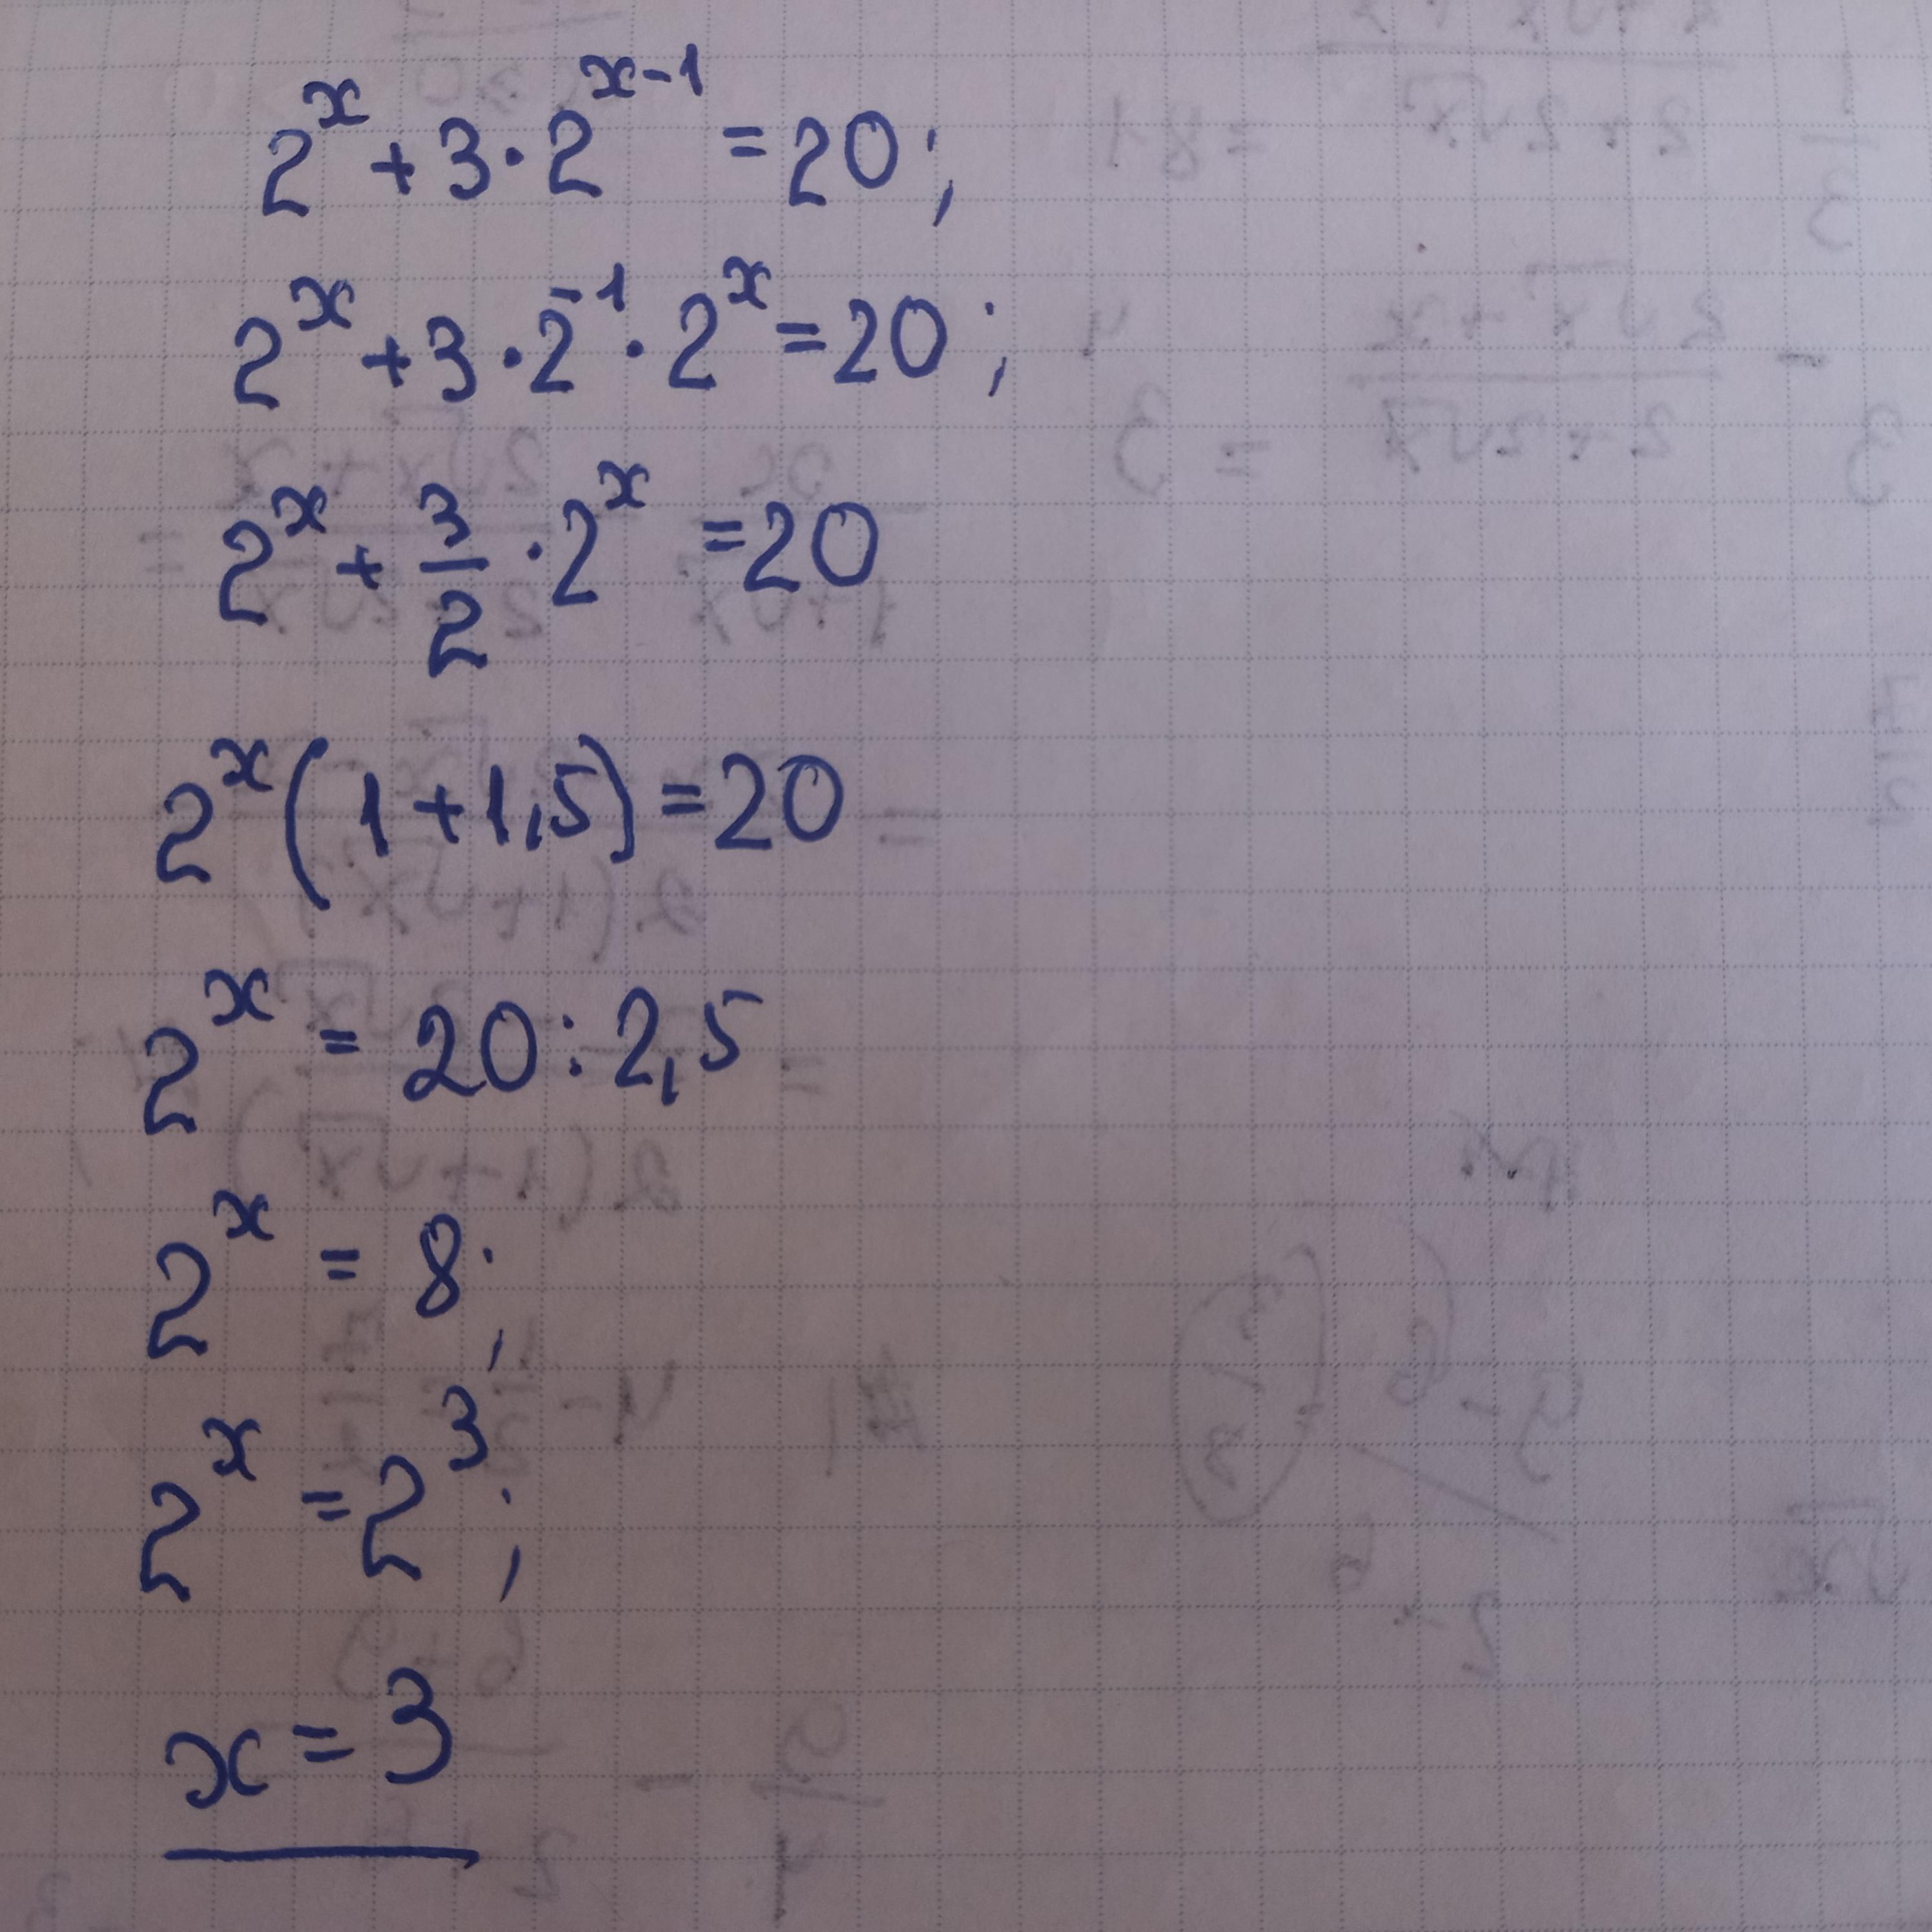 2^x + 3 · 2^(x-1) = 20;
2^x + 3 · 2^(-1) · 2^x = 20;
2^x + 3/2 · 2^x = 20
2^x (1 + 1,5) = 20
2^x = 20 : 2,5
2^x = 8;
2^x = 2^3;
x = 3